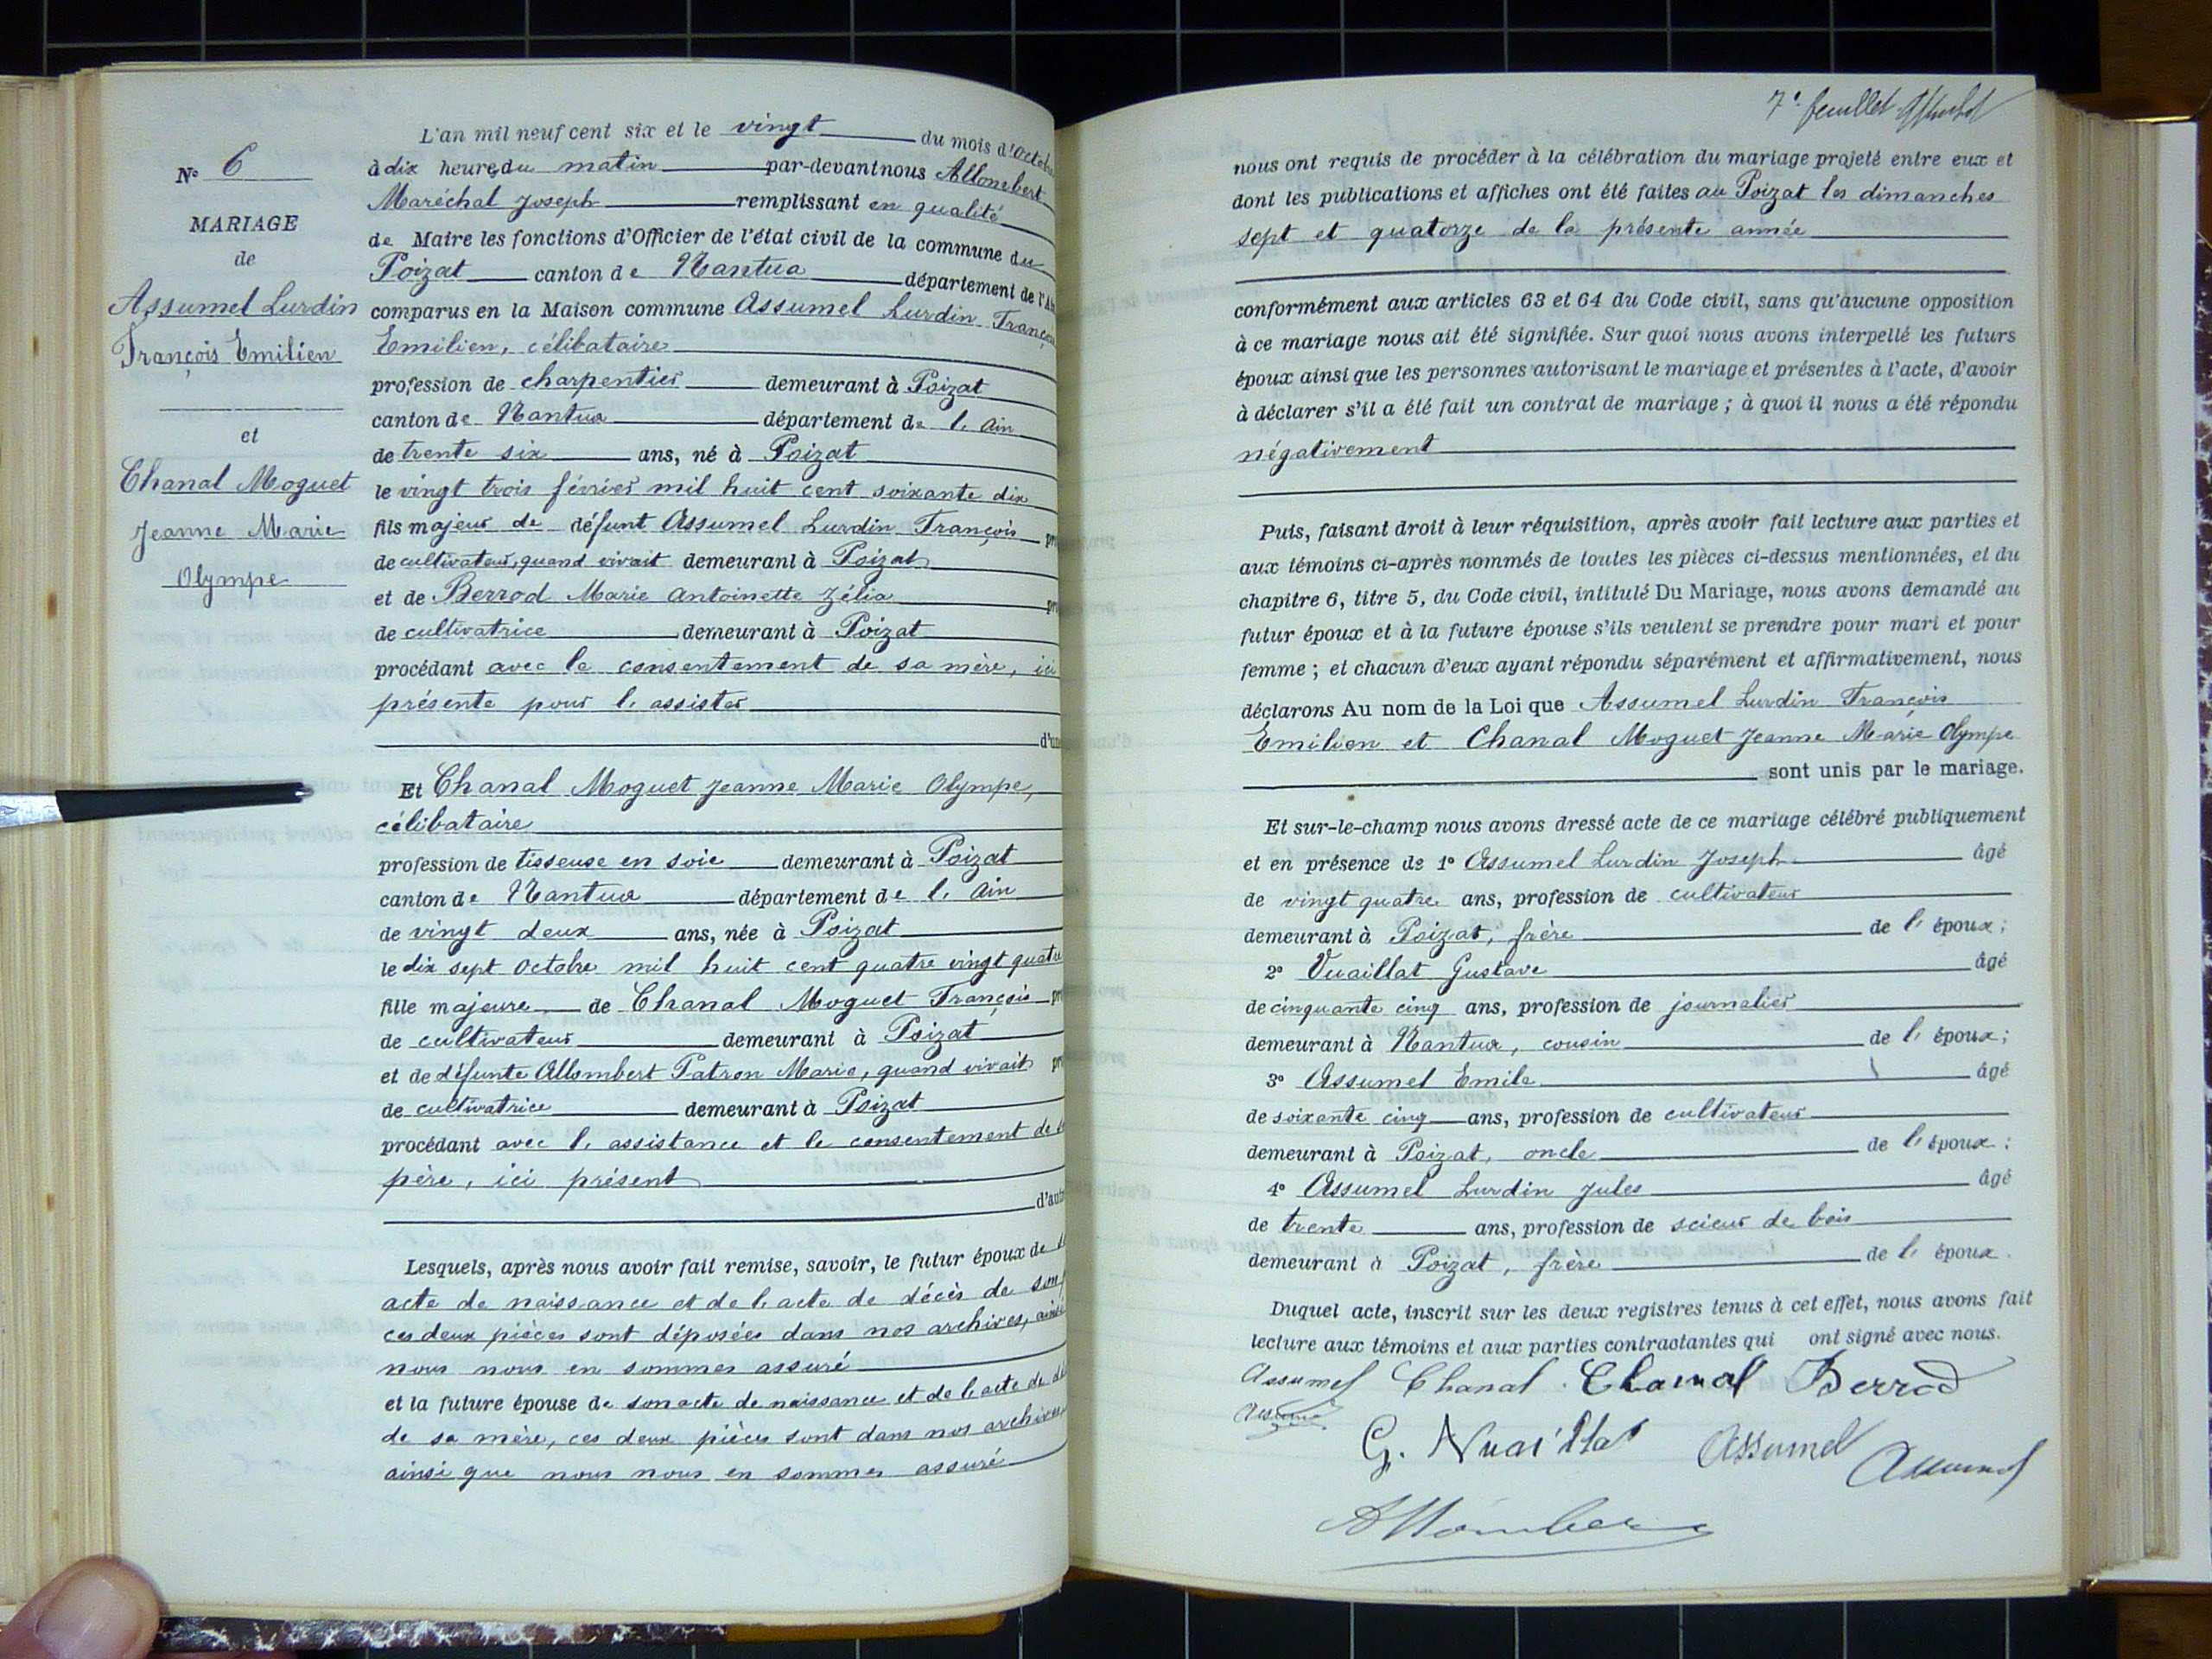 N° 6
MARIAGE
de
Assumel Lurdin
François Emilien
et
Chanal Moguet
Jeanne Marie
Olympe
L'an mil neuf cent six et le vingt du mois d'Octob
à dix heures du matin par-devant nous Allombert
Maréchal Joseph remplissant en qualité
de Maire les fonctions d'Officier de l'état civil de la commune du
Poizat canton de Nantua département de l'A
comparus en la Maison commune Assumel Lurdin Françoi
Emilien, célibataire
profession de charpentier demeurant à Poizat
canton de Nantua département de l'Ain
de trente six ans, né à Poizat
le vingt trois février mil huit cent soixante dix
fils majeur de défunt Assumel Lurdin François pr
de cultivateur, quand vivait demeurant à Poizat
et de Berrod Marie Antoinette Zélia pr
de cultivatrice demeurant à Poizat
procédant avec le consentement de sa mère, ici
présente pour l'assister
d'un
Et Chanal Moguet Jeanne Marie Olympe,
célibataire
profession de tisseuse en soie demeurant à Poizat
canton de Nantua département de l'Ain
de vingt deux ans, née à Poizat
le dix sept Octobre mil huit cent quatre vingt quatre
fille majeure de Chanal Moguet François pr
de cultivateur demeurant à Poizat
et de défunte Allombert Patron Marie, quand vivait pr
de cultivatrice demeurant à Poizat
procédant avec l'assistance et le consentement de
père, ici présent
d'aut
Lesquels, après nous avoir fait remise, savoir, le futur époux de
acte de naissance et de l'acte de décès de son
ces deux pièces sont déposées dans nos archives, ainsi
nous nous en sommes assuré
et la future épouse de son acte de naissance et de l'acte de dé
de sa mère, ces deux pièces sont dans nos archives
ainsi que nous nous en sommes assuré
7e feuillet
nous ont requis de procéder à la célébration du mariage projeté entre eux et
dont les publications et affiches ont été faites au Poizat les dimanches
sept et quatorze de la présente année
conformément aux articles 63 et 64 du Code civil, sans qu'aucune opposition
à ce mariage nous ait été signifiée. Sur quoi nous avons interpellé les futurs
époux ainsi que les personnes autorisant le mariage et présentes à l'acte, d'avoir
à déclarer s'il a été fait un contrat de mariage ; à quoi il nous a été répondu
négativement
Puis, faisant droit à leur réquisition, après avoir fait lecture aux parties et
aux témoins ci-après nommés de toutes les pièces ci-dessus mentionnées, et du
chapitre 6, titre 5, du Code civil, intitulé Du Mariage, nous avons demandé au
futur époux et à la future épouse s'ils veulent se prendre pour mari et pour
femme ; et chacun d'eux ayant répondu séparément et affirmativement, nous
déclarons Au nom de la Loi que Assumel Lurdin François
Emilien et Chanal Moguet Jeanne Marie Olympe
sont unis par le mariage.
Et sur-le-champ nous avons dressé acte de ce mariage célébré publiquement
et en présence de 1° Assumel Lurdin Joseph âgé
de vingt quatre ans, profession de cultivateur
demeurant à Poizat, frère de l'époux ;
2° Vuaillat Gustave âgé
de cinquante cinq ans, profession de journalier
demeurant à Nantua, cousin de l'époux ;
3° Assumel Emile âgé
de soixante cinq ans, profession de cultivateur
demeurant à Poizat, oncle de l'époux ;
4° Assumel Lurdin Jules âgé
de trente ans, profession de scieur de bois
demeurant à Poizat, frère de l'époux.
Duquel acte, inscrit sur les deux registres tenus à cet effet, nous avons fait
lecture aux témoins et aux parties contractantes qui ont signé avec nous.
Assumel Chanal Chanal Berrod
G. Vuaillat Assumel Assumel
Allombert